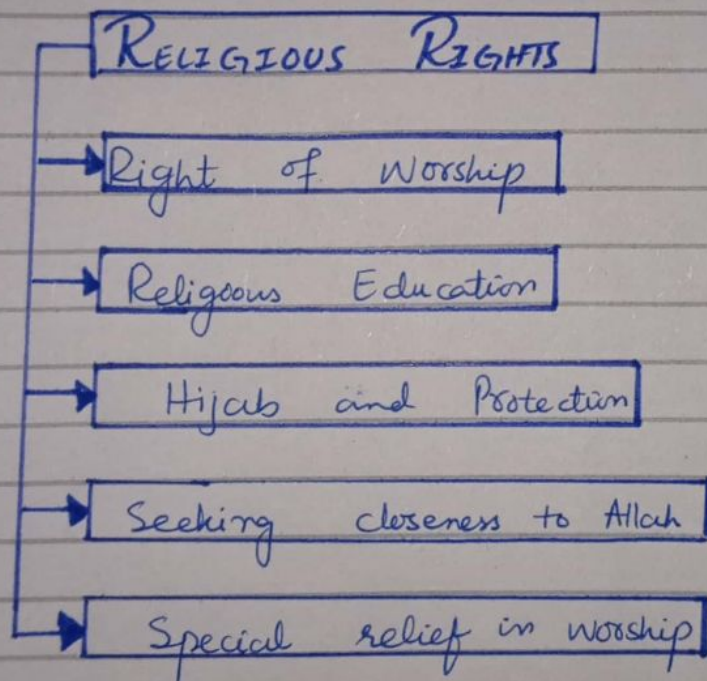 RELIGIOUS RIGHTS
Right of Worship
Religoous Education
Hijab and Protection
Seeking closeness to Allah
Special relief in worship